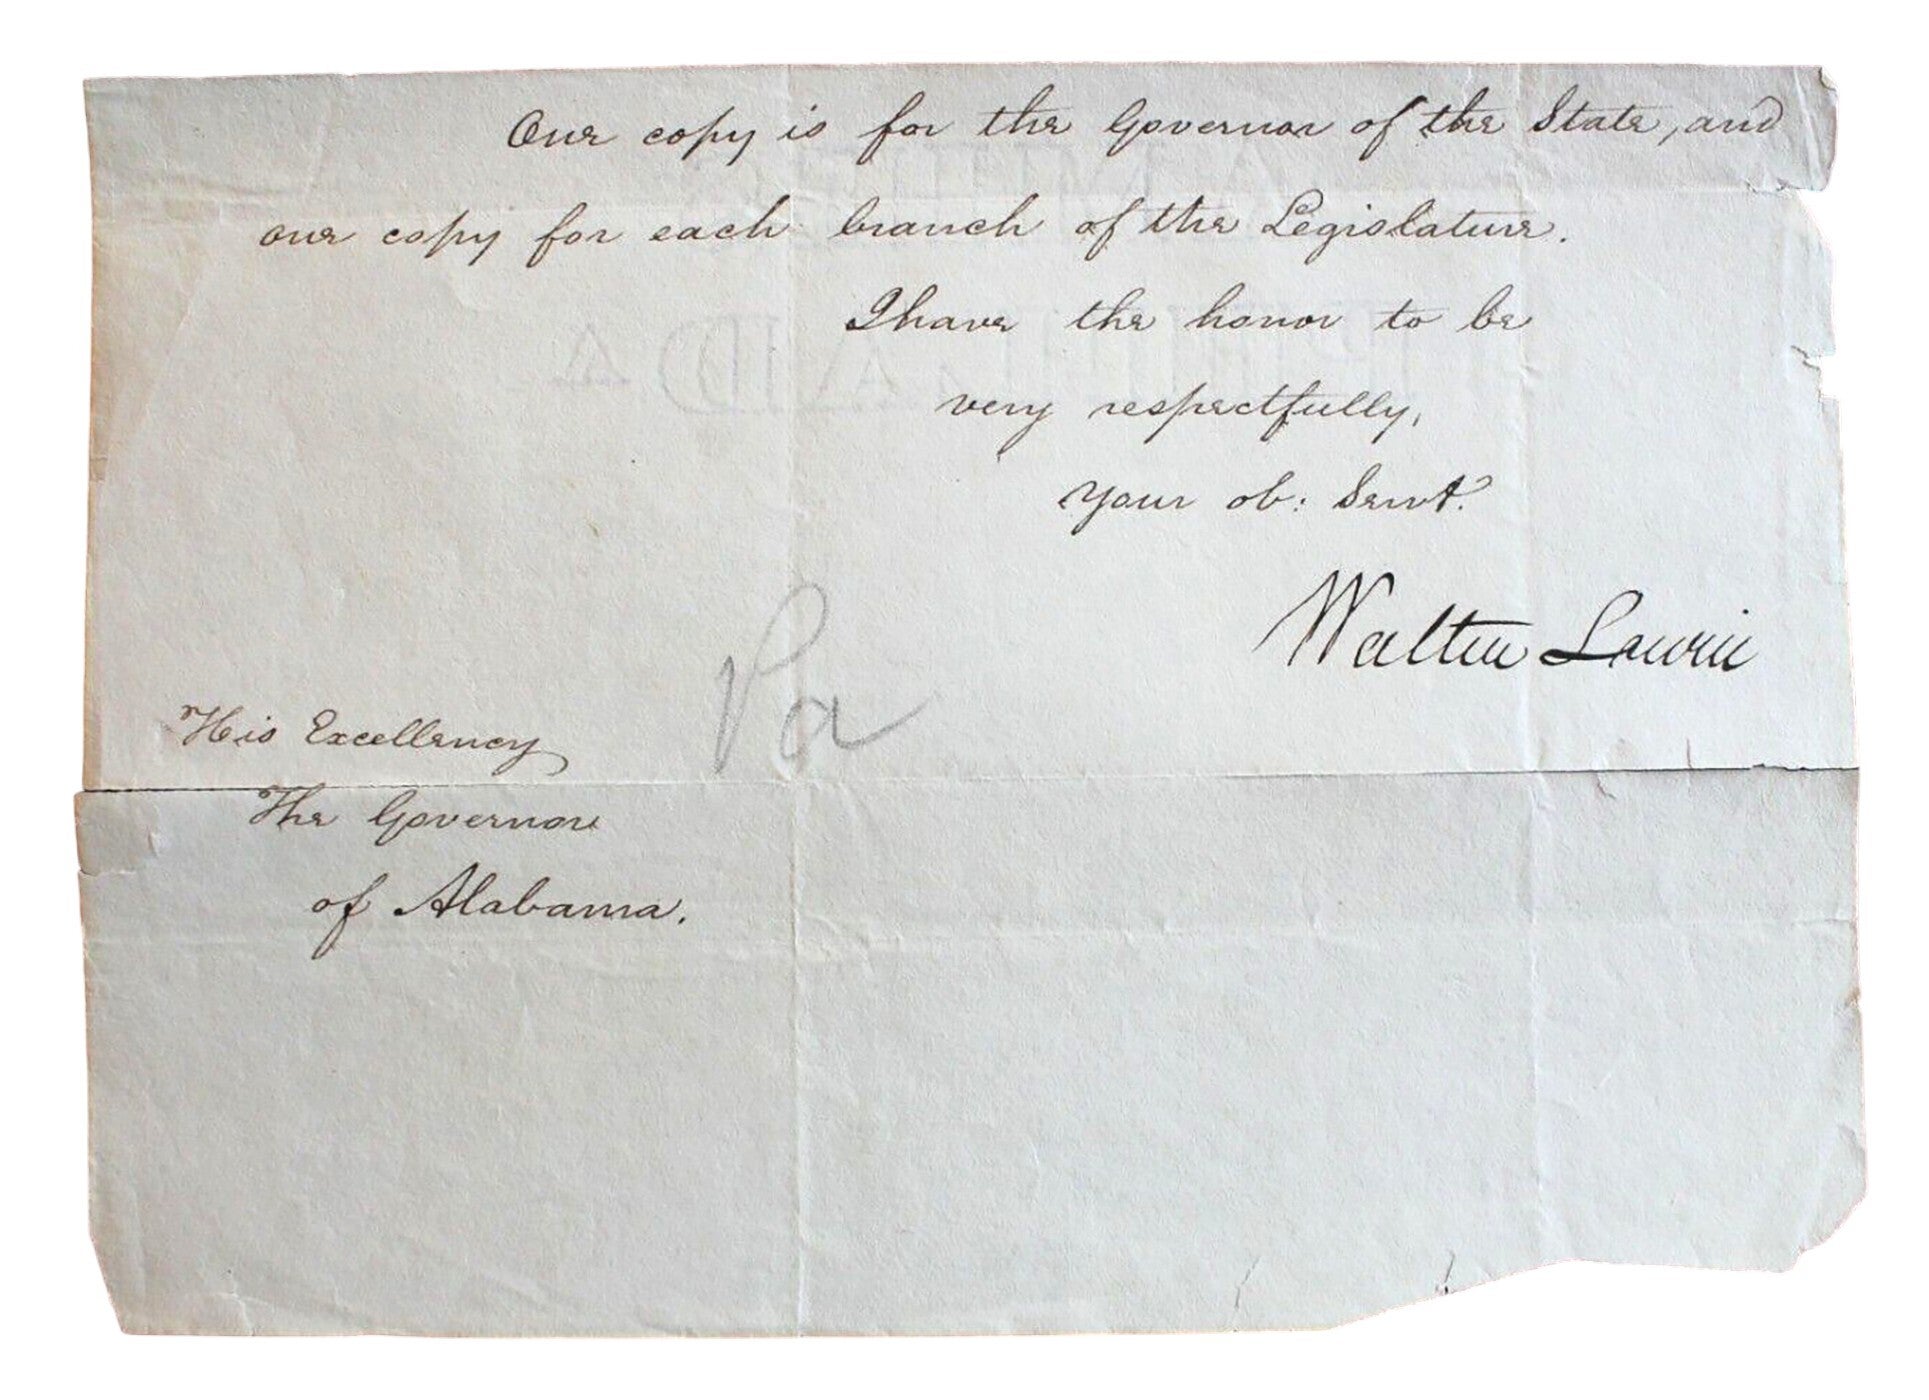 One copy is for the Governor of the State, and
one copy for each branch of the Legislature.
I have the honor to be
very respectfully,
Your ob: Servt.
Walter Lowrie
Pa
His Excellency
The Governor
of Alabama.